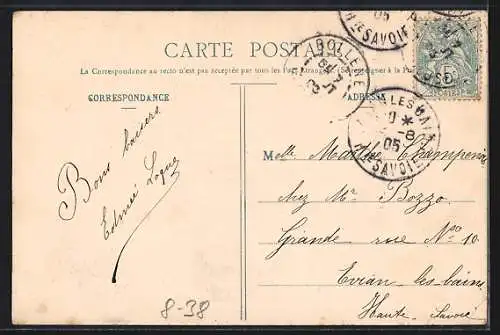 CARTE POSTALE
La Correspondance au recto n'est pas acceptée par tous les Pays Etrangers. (Se renseigner à la Poste)
CORRESPONDANCE
ADRESSE
Bons baisers
Edmée
Melle Marthe Champenois
chez Mr Bozzo
Grande rue No 10
Evian-les-bains
Haute-Savoie
8-38
BOLLÈNE
LES BAINS
8
05
Hte SAVOIE
05
Hte SAVOIE